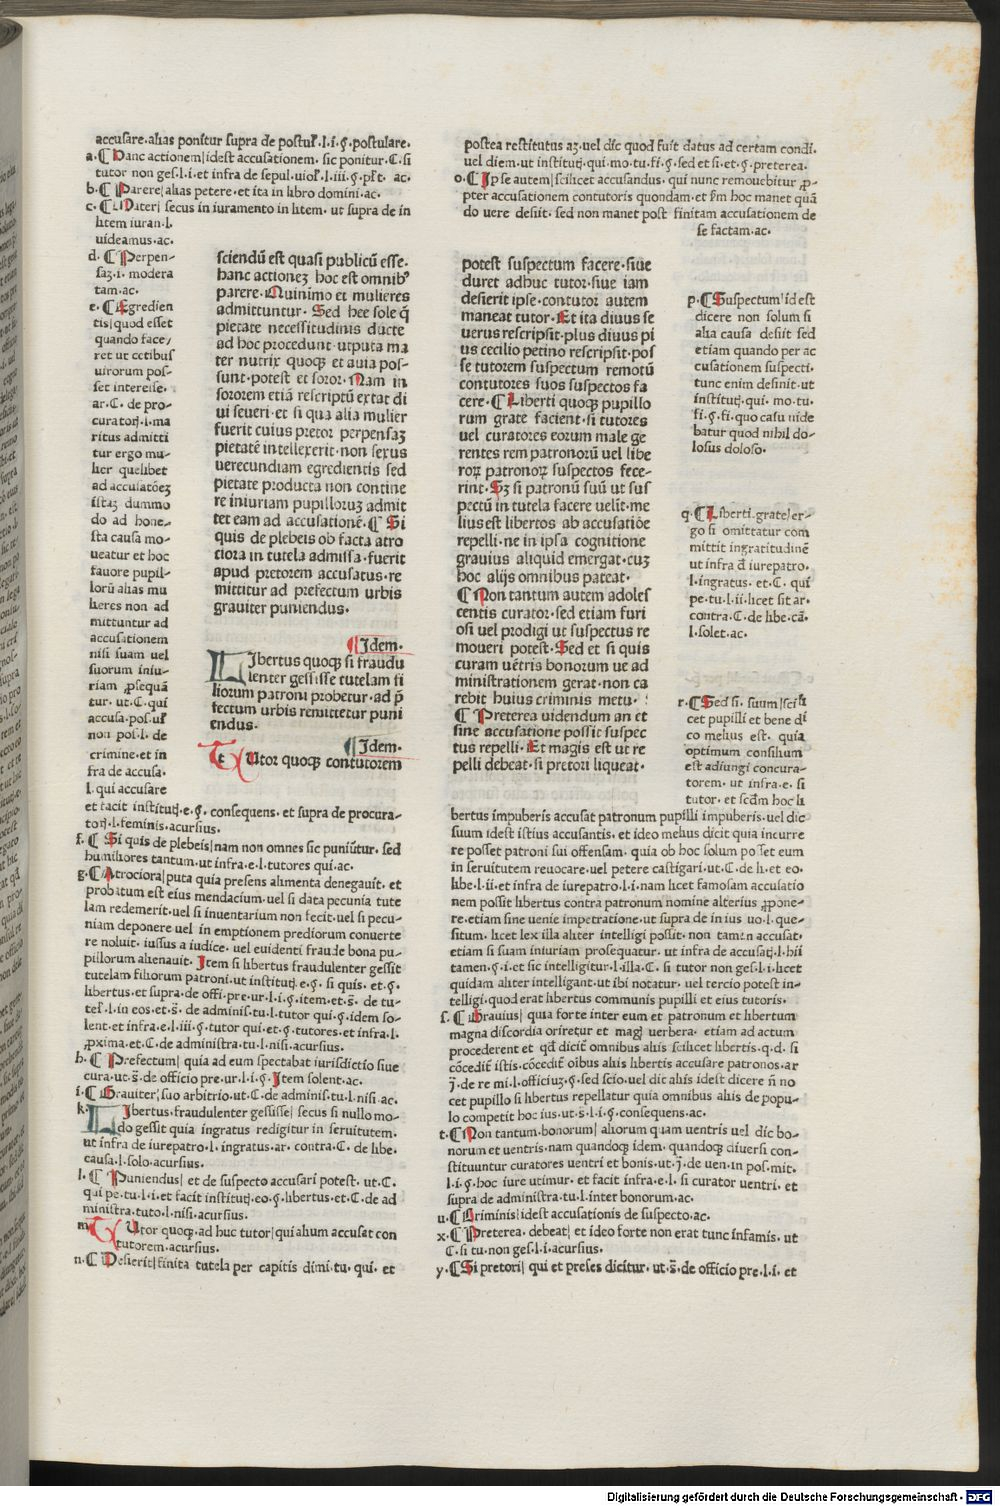 accusare·alias ponitur supra de postul̃·l·i·§·postulare·
a·¶ Hanc actionem|idest accusationem· sic ponitur·C·si
tutor non ges·l·i·et infra de sepul·uiol̃·l·iii·§·p̃t· ac·
b·¶ Parere|alias petere·et ita in libro domini·ac·
c·¶ Mater| secus in iuramento in litem· ut supra de in
litem iuran·l·
uideamus·ac·
d·¶ Perpen-
saʒ·i· modera
tam·ac·
e·¶ Egredien
tis|quod esset
quando face/
ret ut cetibus
uirorum pos-
set interesse·
ar·C· de pro-
curatoɼ·l·ma
ritus admitti
tur ergo mu-
lier quelibet
ad accusatõeʒ
istaʒ dummo
do ad hone-
sta causa mo-
ueatur et hoc
fauore pupil-
lorũ alias mu
lieres non ad
mittuntur ad
accusationem
nisi suam uel
suorum iniu-
riam ꝓsequã
tur· ut·C·qui
accusa·pos·ul̃
non pos·l· de
crimine·et in
fra de accusa·
l·qui accusare
et facit institutɼ·e·§· consequens· et supra de procura-
toɼ·l·feminis·acursius·
f·¶ Si quis de plebeis|nam non omnes sic puniũtur· sed
humiliores tantum·ut infra·e·l·tutores qui·ac·
g·¶ Atrociora|puta quia presens alimenta denegauit· et
probatum est eius mendacium·uel si data pecunia tute
lam redemerit·uel si inuentarium non fecit·uel si pecu-
niam deponere uel in emptionem prediorum conuerte
re noluit· iussus a iudice· uel euidenti fraude bona pu-
pillorum alienauit· Item si libertus fraudulenter gessit
tutelam filiorum patroni·ut institutɼ e·§· si quis·et·§·
libertus·et supra·de offi·pre·ur·l·i·§·item·et·s̃· de tu-
tel̃·l·in eos·et·s̃· de adminis·tu·l·tutor qui·§·idem so-
lent·et infra·e·l·iii·§·tutor qui·et·§·tutores·et infra·l·
ꝓxima·et·C·de administra·tu·l·nisi·acursius·
h·¶ Prefectum| quia ad eum spectabat iurisdictio siue
cura·ut·s̃·de officio pre·ur·l·i·§·Item solent·ac·
i·¶ Grauiter|suo arbitrio·ut·C·de adminis·tu·l·nisi·ac·
k· Libertus·fraudulenter gessisse| secus si nullo mo-
do gessit quia ingratus redigitur in seruitutem·
ut infra de iurepatro·l·ingratus·ar·contra·C· de libe·
causa·l·solo·acursius·
l·¶ Puniendus| et de suspecto accusari potest· ut·C·
qui pe·tu·l·i·et facit institutɼ·eo·§·libertus·et·C·de ad
ministra·tuto·l·nisi·acursius·
m· Tutor quoqʒ·ad huc tutor|qui alium accusat con
tutorem·acursius·
n·¶ Desierit|finita tutela per capitis dimi·tu· qui· et
sciendũ est quasi publicũ esse·
hanc actioneʒ hoc est omnibꝰ
parere·Quinimo et mulieres
admittuntur· Sed hee sole q̃
pietate necessitudinis ducte
ad hoc procedunt·utputa ma
ter nutrix quoqʒ et auia pos-
sunt·potest et soror·Nam in
sororem etiã rescriptũ extat di
ui seueri·et si qua alia mulier
fuerit cuius pretor perpensaʒ
pietatẽ intellexerit·non sexus
uerecundiam egredientis sed
pietate producta non contine
re iniuriam pupilloruʒ admit
tet eam ad accusationẽ·¶ Si
quis de plebeis ob facta atro
ciora in tutela admissa·fuerit
apud pretorem accusatus·re
mittitur ad prefectum urbis
grauiter puniendus·
¶Idem·
Libertus quoqʒ si fraudu
lenter gessisse tutelam fi
liorum patroni probetur·ad p̃
fectum urbis remittetur puni
endus·
¶Idem·
Tutor quoqʒ contutorem
postea restitutus aʒ·uel dic quod fuit datus ad certam condi·
uel diem·ut institutɼ·qui·mo·tu·fi·§·sed et si·et·§·preterea·
o·¶ Ipse autem|scilicet accusandus· qui nunc remouebitur ꝓ-
pter accusationem contutoris quondam·et s̃m hoc manet quã
do uere desiit· sed non manet post finitam accusationem de
se factam·ac·
potest suspectum facere·siue
duret adhuc tutor·siue iam
desierit ipse·contutor autem
maneat tutor·Et ita diuus se
uerus rescripsit·plus diuus pi
us cecilio petino rescripsit·pos
se tutorem suspectum remotũ
contutores suos suspectos fa
cere·¶Liberti quoqʒ pupillo
rum grate facient·si tutores
uel curatores eorum male ge
rentes rem patronorũ uel libe
roɼ patronoɼ suspectos fece-
rint·Sʒ si patronũ suũ ut sus
pectũ in tutela facere uelit·me
lius est libertos ab accusatiõe
repelli·ne in ipsa cognitione
grauius aliquid emergat·cuʒ
hoc alijs omnibus pateat·
¶Non tantum autem adoles
centis curator·sed etiam furi
osi uel prodigi ut suspectus re
moueri potest·Sed et si quis
curam uẽtris bonorum ue ad
ministrationem gerat·non ca
rebit huius criminis metu·
¶ Preterea uidendum an et
sine accusatione possit suspec
tus repelli· Et magis est ut re
pelli debeat·si pretori liqueat·
p·¶Suspectum|id est
dicere non solum si
alia causa desiit sed
etiam quando per ac
cusationem suspecti·
tunc enim definit·ut
institutɼ·qui· mo·tu·
fi·§·fi·quo casu uide
batur quod nihil do-
losus doloso·
q·¶Liberti·grate|er-
go si omittatur com
mittit ingratitudinẽ
ut infra d̃ iurepatro·
l·ingratus· et·C· qui
pe·tu·l·ii·licet sit ar·
contra·C·de libe·cã·
l·solet·ac·
r·¶Sed si· suum|scilt̃
cet pupilli et bene di
co melius est· quia
optimum consilium
est adiungi concura-
torem· ut infra·e· si
tutor· et scd̃m hoc li
bertus impuberis accusat patronum pupilli impuberis·uel dic
suum idest istius accusantis·et ideo melius dicit quia incurre
re posset patroni sui offensam· quia ob hoc solum posset eum
in seruitutem reuocare·uel petere castigari·ut·C·de li·et eo·
libe·l·ii·et infra de iurepatro·l·i·nam licet famosam accusatio
nem possit libertus contra patronum nomine alterius ꝓpone-
re·etiam sine uenie impetratione·ut supra de in ius uo·l·que-
situm· licet lex illa aliter intelligi possit· non tamen accusat·
etiam si suam iniuriam prosequatur· ut infra de accusatɼ·l·hii
tamen·§·i·et sic intelligitur·l·illa·C· si tutor non ges·l·i·licet
quidam aliter intelligant·ut ibi notatur· uel tercio potest in-
telligi·quod erat libertus communis pupilli et eius tutoris·
s·¶ Grauius| quia forte inter eum et patronum et libertum
magna discordia oriretur et magɼ uerbera· etiam ad actum
procederent et qd̃ dicit omnibus aliis scilicet libertis·q·d· si
cõcedit̃ istis·cõcedit̃ oĩbus aliis libertis accusare patronos·ar
ɉ·de re mi·l·officiuʒ·§·sed scio·uel dic aliis idest dicere ñ no
cet pupillo si libertus repellatur quia omnibus aliis de popu-
lo competit hoc ius·ut·s̃·l·i·§·consequens·ac·
t·¶Non tantum·bonorum| aliorum quam uentris uel dic bo-
norum et uentris·nam quandoqʒ idem· quandoqʒ diuersi con-
stituuntur curatores uentri et bonis·ut·ɉ·de uen·in pos·mit·
l·i·§·hoc iure utimur· et facit infra·e·l· si curator uentri· et
supra de administra·tu·l·inter bonorum·ac·
u·¶Criminis|idest accusationis de suspecto·ac·
x·¶Preterea· debeat| et ideo forte non erat tunc infamis· ut
C·si tu·non ges·l·i·acursius·
y·¶Si pretori| qui et preses dicitur· ut·s̃·de officio pre·l·i· et
Digitalisierung gefördert durch die Deutsche Forschungsgemeinschaft · DFG